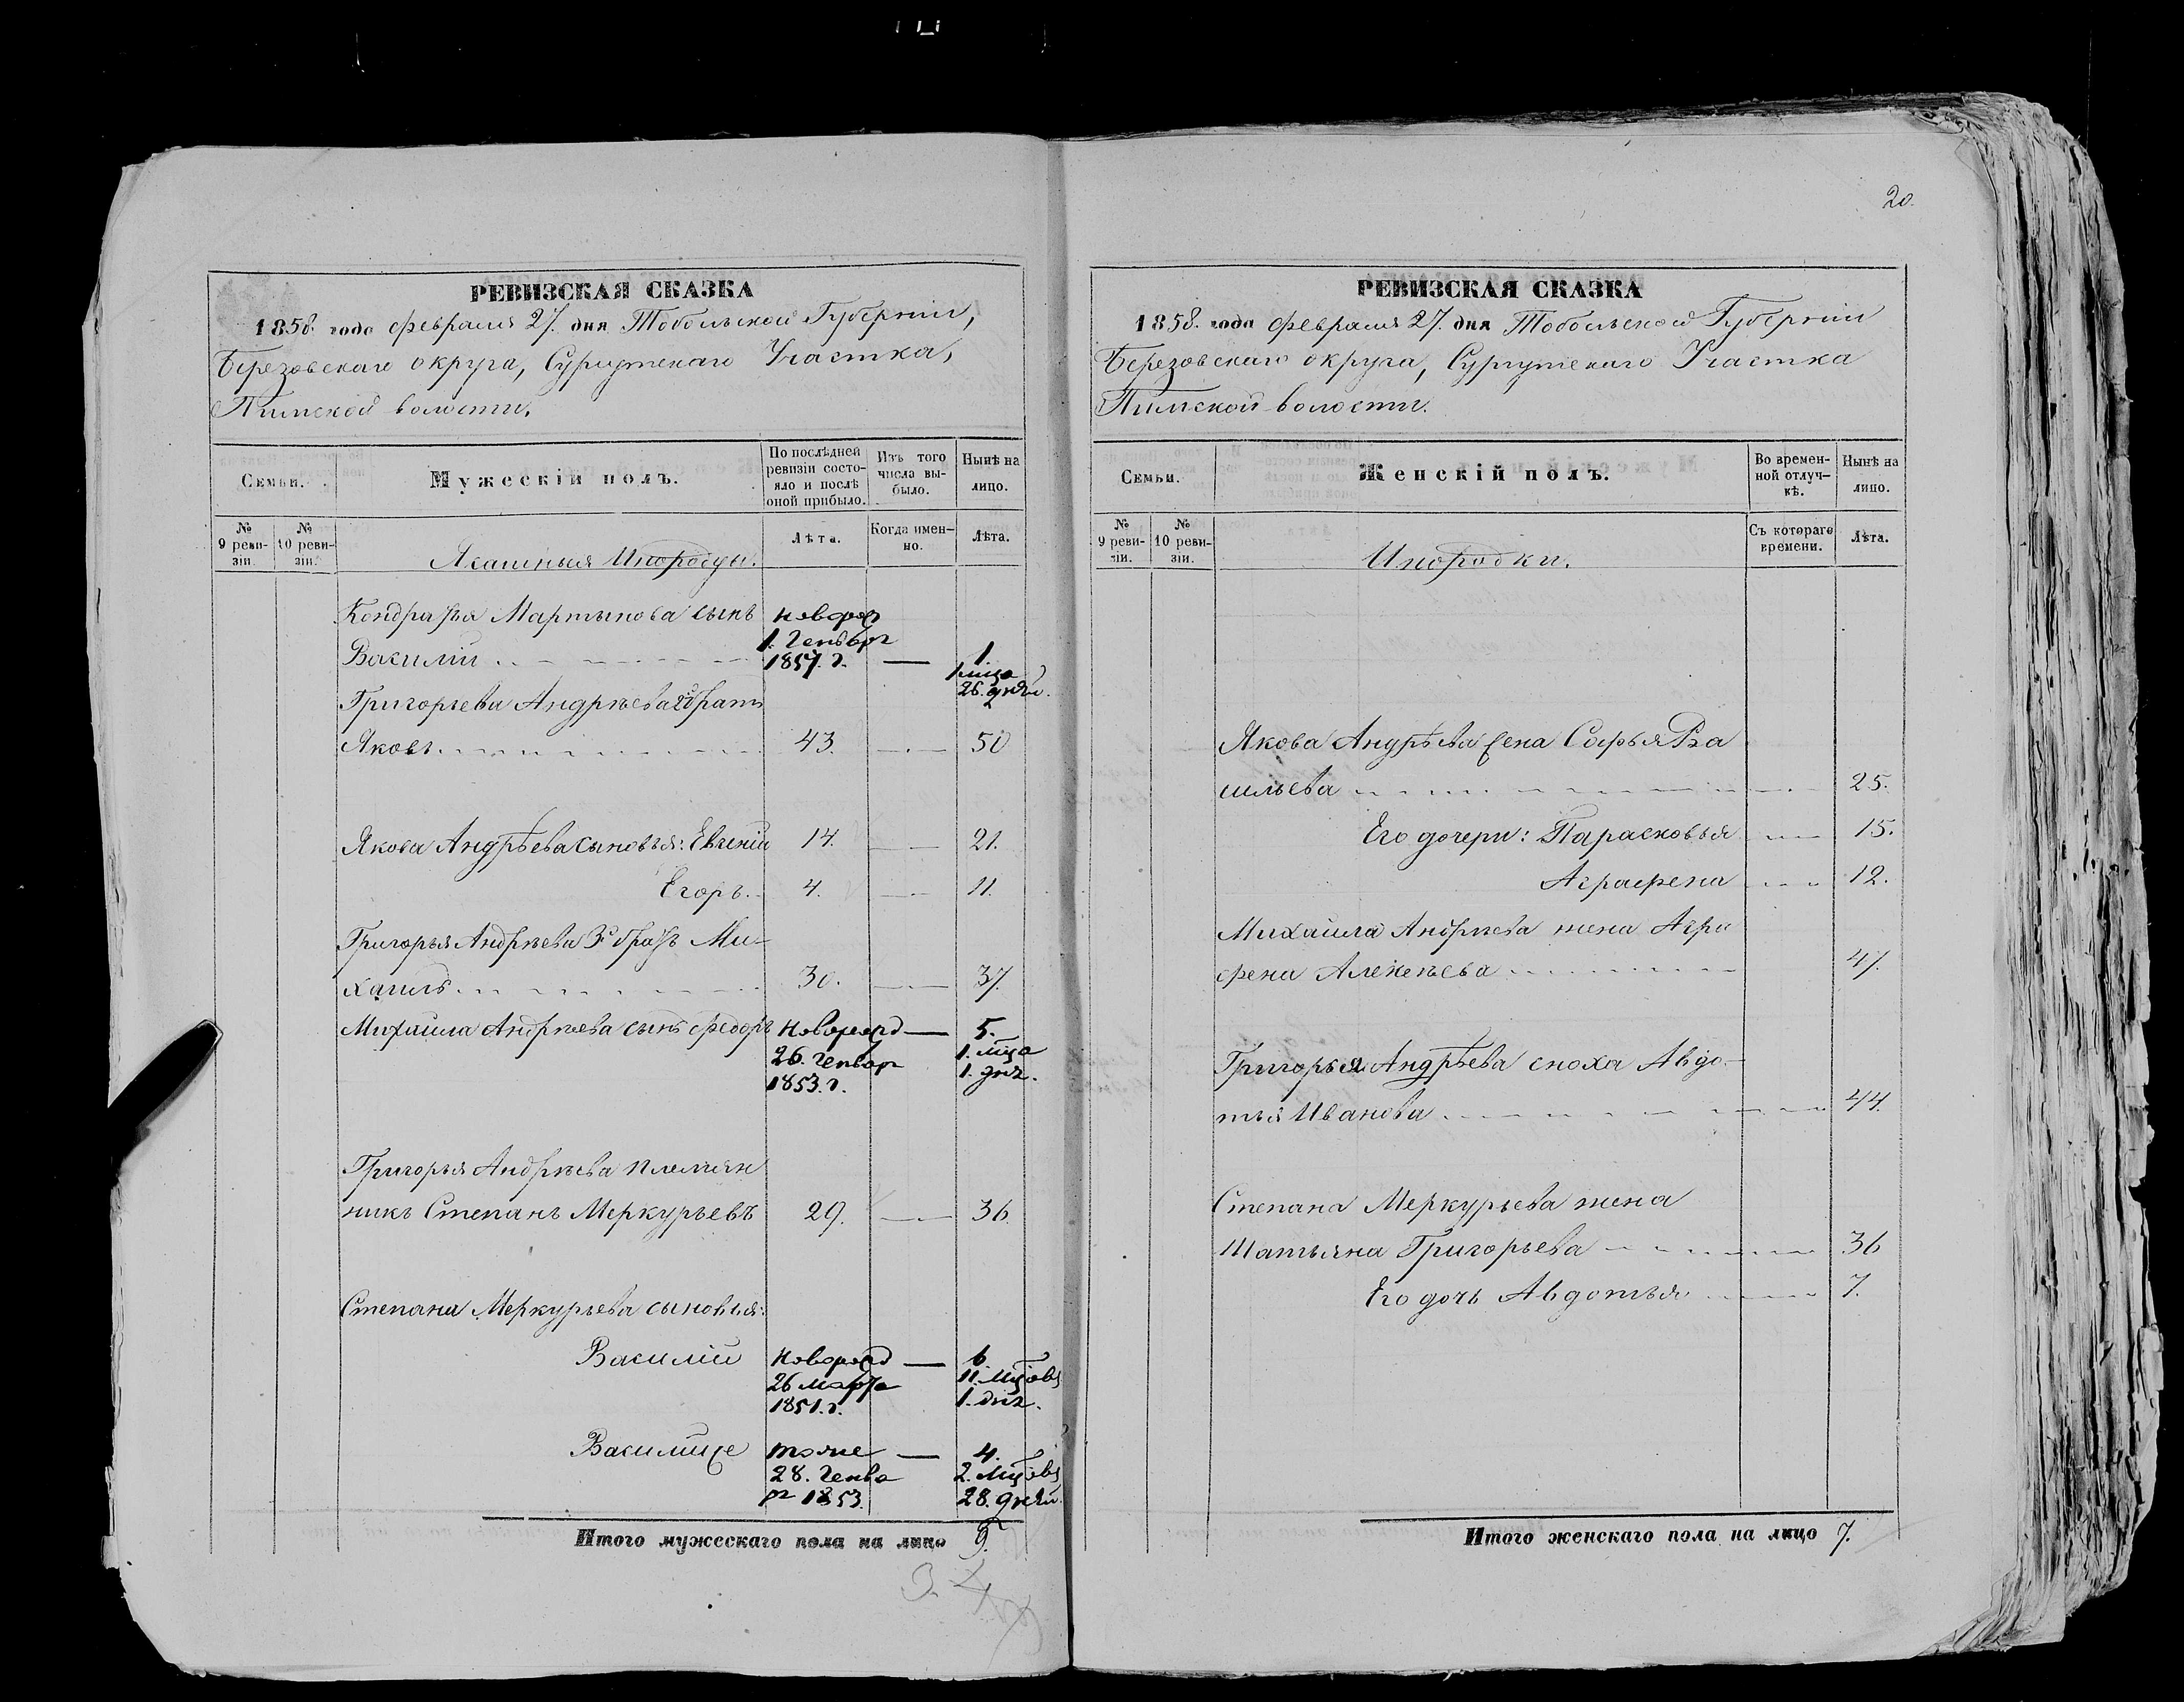 РЕВИЗСКАЯ СКАЗКА
1858. года февраля 27. дня Тобольской Губерніи,
Березовскаго округа, Сургутскаго Участка,
Пимской волости.
Семьи.
Мужескій полъ.
По послѣдней ревизіи состояло и послѣ оной прибыло.
Изъ того числа выбыло.
Нынѣ на лицо.
№ 9 ревизіи.
№ 10 ревизіи.
Ясашныя Инородцы.
Лѣта.
Когда именно.
Лѣта.
Кондратья Мартынова сынъ новорож
1. Генваря
Василій 1857. г. — 1
1 мца
26. дней.
Григорьева Андрѣева 2й братъ
Яковъ 43. 50
Якова Андрѣева сыновья: Евгеній 14. 21.
Егоръ 4. 11.
Григорья Андрѣева 3й братъ Ми-
хаилъ 30. 37.
Михаила Андрѣева сынъ Федоръ новорожд — 5.
26. Генвар 1. мца
1853. г. 1. дня.
Григорья Андрѣева племян
никъ Степанъ Меркурьевъ 29. 36.
Степана Меркурьева сыновья:
Василій новорожд — 6.
26 марта 11. мцовъ
1851. г. 1. дня.
тоже — 4.
28. Генва 2. мцовъ
ря 1853. 28. дней.
Итого мужескаго пола на лицо 9.
20.
РЕВИЗСКАЯ СКАЗКА
1858. года февраля 27. дня Тобольской Губерніи
Березовскаго округа, Сургутскаго Участка
Пимской волости.
Семьи.
Женскій полъ.
Во временной отлучкѣ.
Нынѣ на лицо.
№ 9 ревизіи.
№ 10 ревизіи.
Инородки.
Съ котораго времени.
Лѣта.
Якова Андрѣева жена Софья Ва
сильева 25.
Его дочери: Парасковья 15.
Аграфена 12.
Михаила Андрѣева жена Агра
фена Алексѣева 47.
Григорья Андрѣева сноха Авдо-
тья Иванова 44.
Степана Меркурьева жена
Татьяна Григорьева 36
Его дочь Авдотья 7.
Итого женскаго пола на лицо 7.